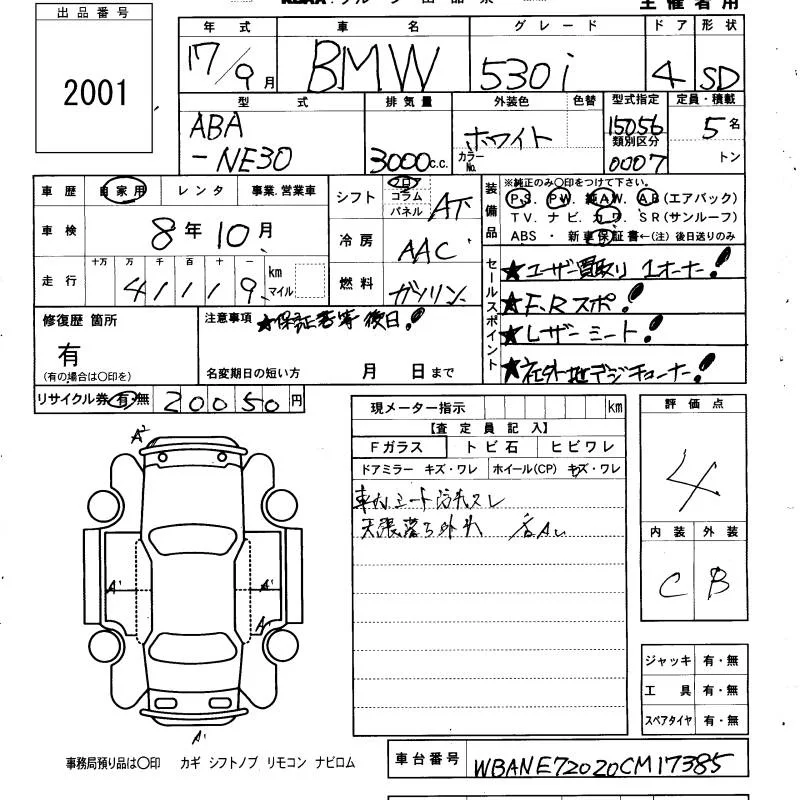 主催者用
出品番号
2001
年式 車名 グレード ドア 形状
17/9月 BMW 530i 4 SD
型式 排気量 外装色 色替 型式指定 定員・積載
ABA-NE30 3000c.c. ホワイト 15056 5名
カラーNo. 類別区分 0007 トン
車歴 自家用 レンタ 事業.営業車
車検 8年10月
走行 十万 万 千 百 十 一
41119 km マイル
シフト フロア コラム パネル AT
冷房 AAC
燃料 ガソリン
装備品
※純正のみ〇印をつけて下さい。
P.S. P.W. 純AW. AB(エアバック)
TV. ナビ. カワ. SR(サンルーフ)
ABS ・ 新車保証書←(注) 後日送りのみ
セールスポイント
★ユーザー買取り 1オーナー!
★F,Rスポ!
★レザーシート!
★社外地デジチューナー!
修復歴 箇所
有
(有の場合は〇印を)
注意事項 ★保証書等後日!
名変期日の短い方 月 日まで
リサイクル券 有 無 20050円
現メーター指示 km
【査定員記入】
Fガラス トビ石 ヒビワレ
ドアミラー キズ・ワレ ホイール(CP) キズ・ワレ
車内シート汚れスレ
天張落ち外れ
評価点
4
内装 外装
C B
A2
A1 A1
A1
ジャッキ 有・無
工具 有・無
スペアタイヤ 有・無
事務局預り品は〇印 カギ シフトノブ リモコン ナビロム
車台番号 WBANE72020CM17385